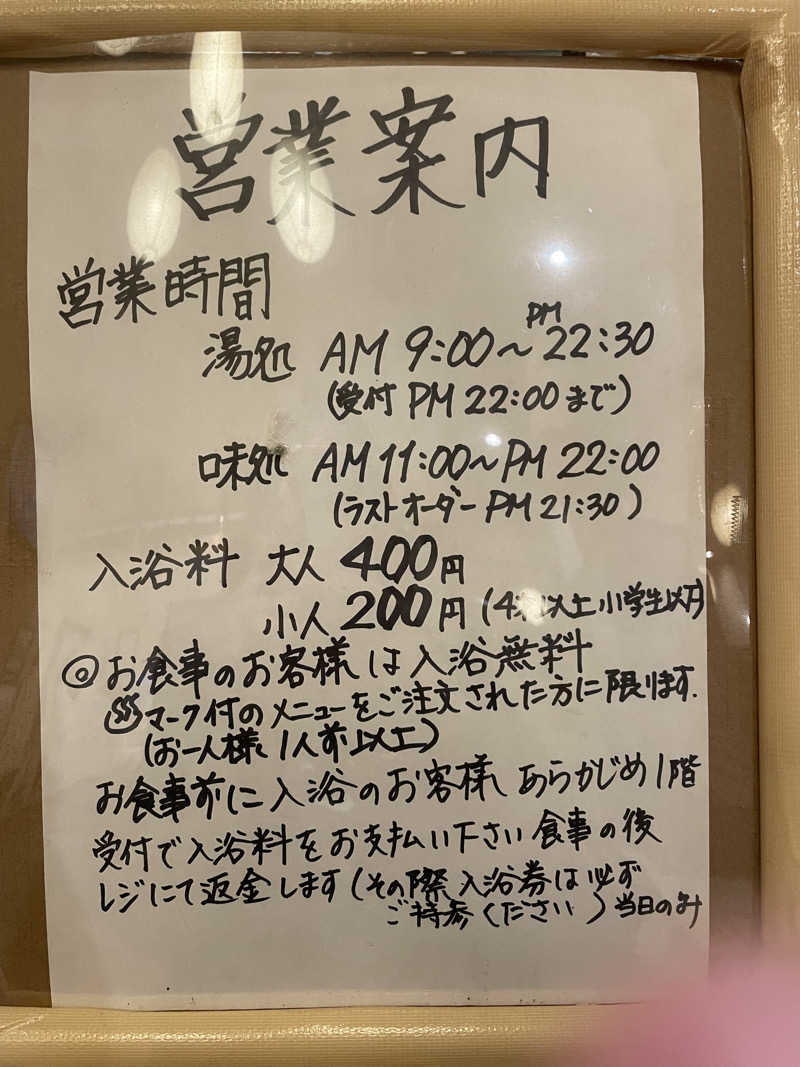 営業案内
営業時間
湯処 AM 9:00～PM 22:30
(受付 PM 22:00 まで)
味処 AM 11:00～PM 22:00
(ラストオーダー PM 21:30)
入浴料 大人 400円
小人 200円 (4才以上小学生以下)
◎お食事のお客様は入浴無料
♨マーク付のメニューをご注文された方に限ります.
(お一人様1人前以上)
お食事前に入浴のお客様 あらかじめ1階
受付で入浴料をお支払い下さい 食事の後
レジにて返金します (その際入浴券は必ず
ご持参ください) 当日のみ